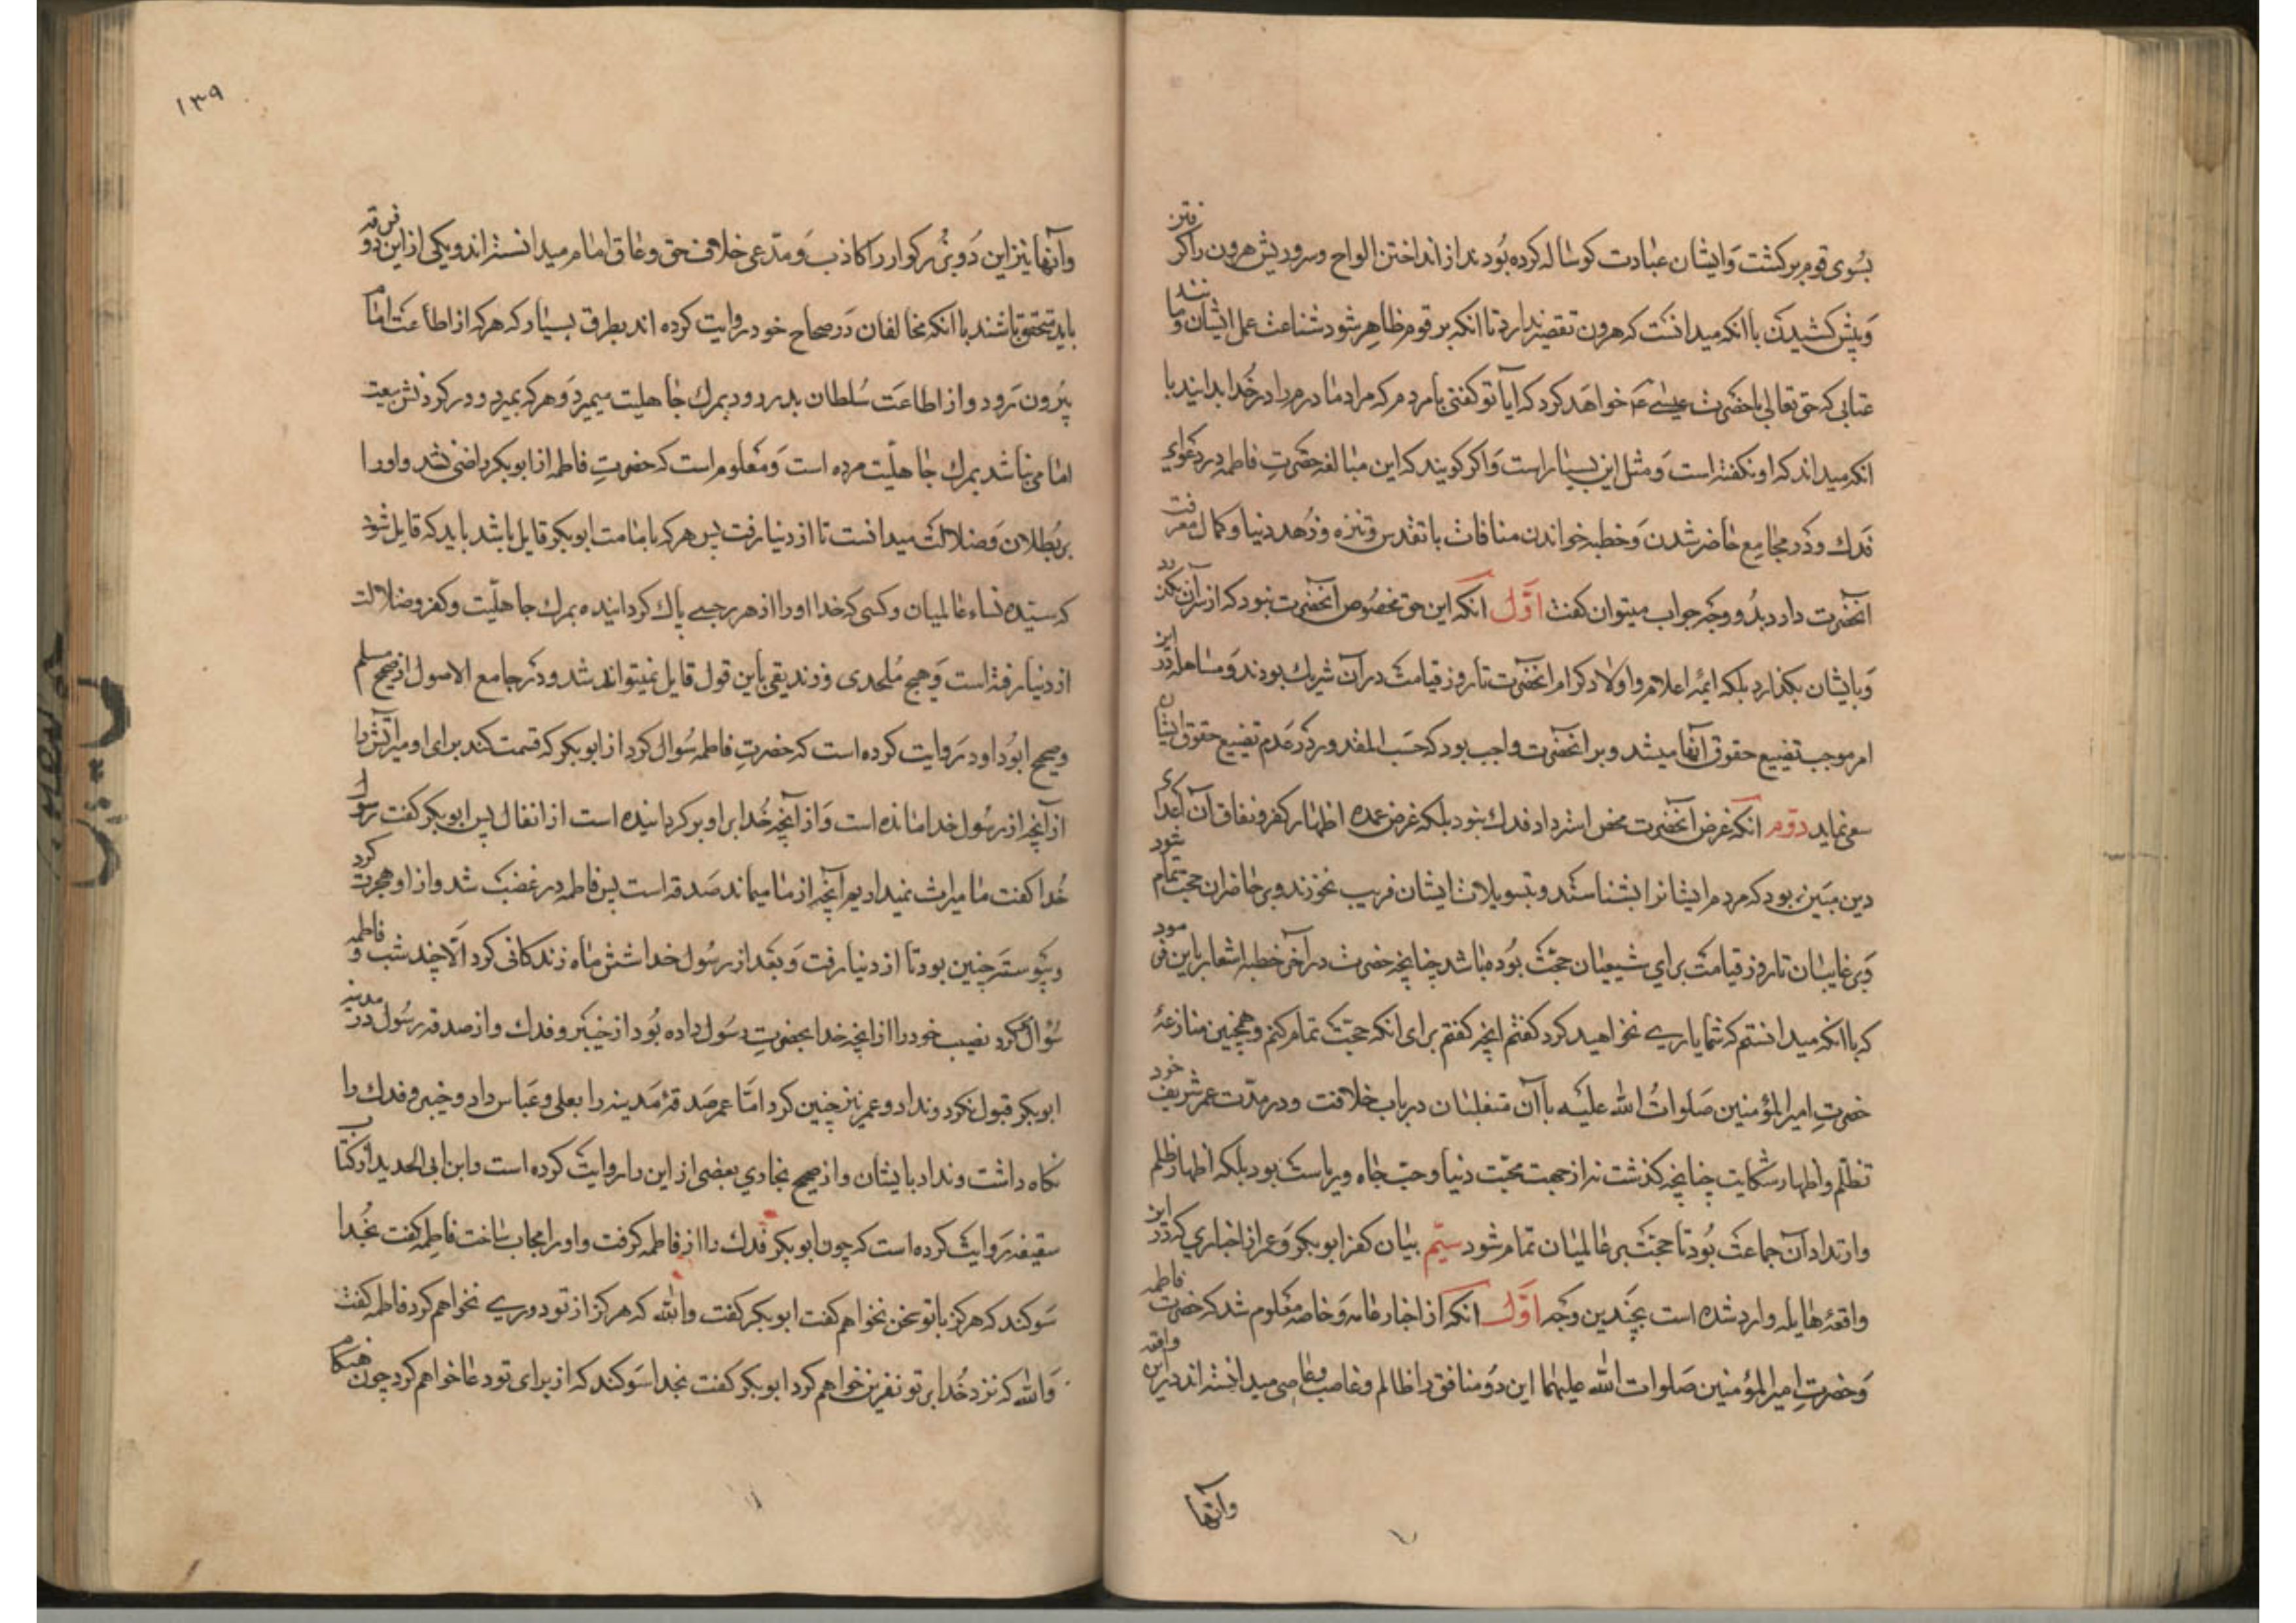 بسوی قوم برکشت و ایشان عبادت کوساله کرده بودند از انداختن الواح و سر و ریش هرون را کرفتن
و پیش کشیدن با آنکه میدانست که هرون تقصیر ندارد تا آنکه بر قوم ظاهر شود شناعت عمل ایشان و مانند
عتابی که حق تعالی با حضرت عیسی ع خواهد کرد که آیا تو کفتی بامردم که مرا و مادرم را در خدا بدانید با
انکه میداند که او نکفته است و مثل این بسیار است و اکر کویند که این مبالغه حضرت فاطمه در دعوای
فدك و در مجامع حاضر شدن و خطبه خواندن منافات با تقدس و تنزه و زهد دنیا و کمال معرفت
انحضرت دارد بدو وجه جواب میتوان کفت اول انکه این حق مخصوص آنحضرت نبود که از سر آن بکذرد
و بایشان بکذارد بلکه ایمه اعلام و اولاد کرام انحضرت تا روز قیامت در آن شریك بودند و مساهله در این
امر موجب تضییع حقوق آنها میشد و بر انحضرت واجب بود که حسب المقدور در عدم تضییع حقوق ایشان
سعی نماید دوم آنکه غرض آنحضرت محض استرداد فدك نبود بلکه غرض عمده اظهار کفر و نفاق آن اعدای
دین مبین بود که مردم ایشانرا بشناسند و بتسویلات ایشان فریب نخورند و بر حاضران حجت تمام شود
و بر غایبان تا روز قیامت برای شیعیان حجت بوده باشد چنانچه حضرت در آخر خطبه اشعار باین فرمود
که با آنکه میدانستم که شما یاری نخواهید کرد کفتم انچه کفتم برای انکه حجت تمام کنم و همچنین منازعهٔ
حضرت امیر المؤمنین صلوات الله علیه با آن متغلبان در باب خلافت و در مدت عمر شریف خود
تظلم و اظهار شکایت چنانچه کذشت نه از جهت محبت دنیا و حب جاه و ریاست بود بلکه اظهار ظلم
و ارتداد آن جماعت بود تا حجت بر عالمیان تمام شود سیم بیان کفر ابوبکر و عمر از اخباری که در این
واقعهٔ هایله وارد شده است بچندین وجه اول انکه از اخبار عامه و خاصه معلوم شد که حضرت فاطمه
و حضرت امیر المؤمنین صلوات الله علیهما این دو منافق را ظالم و غاصب و عاصی میدانسته اند در این واقعه
وآنها
١٣٩
و آنها نیز این دو بزرکوار را کاذب و مدعی خلاف حق و عاق امام میدانسته اند و یکی از این دو فرقه
باید تحقق باشند با انکه مخالفان در صحاح خود روایت کرده اند بطرق بسیار که هر که از اطاعت امام
بیرون رود و از اطاعت سلطان بدر رود بمرك جاهلیت میمیرد و هر که بمیرد و در کردنش بیعت
امامی نباشد بمرك جاهلیت مرده است و معلوم است که حضرت فاطمه از ابوبکر راضی نشد و او را
بر بطلان و ضلالت میدانست تا از دنیا رفت پس هر که بامامت ابوبکر قایل باشد باید که قایل شود
که سیده نساء عالمیان و کسی که خدا او را از هر رجسی پاك کردانیده بمرك جاهلیت و کفر و ضلالت
از دنیا رفته است و هیچ ملحدی و زندیقی باین قول قایل نمیتواند شد و در جامع الاصول از صحیح مسلم
و صحیح ابو داود روایت کرده است که حضرت فاطمه سوال کرد از ابوبکر که قسمت کند برای او میراثش را
از آنچه از رسول خدا مانده است و از آنچه خدا بر او بر کردانیده است از انفال پس ابوبکر کفت رسول
خدا کفت ما میراث نمیدادیم آنچه از ما میماند صدقه است پس فاطمه در غضب شد و از او هجرت کرد
و پیوسته چنین بود تا از دنیا رفت و بعد از رسول خدا شش ماه زندکانی کرد الا چند شب و فاطمه
سؤال کرد نصیب خود را از انچه خدا بحضرت رسول داده بود از خیبر و فدك و از صدقه رسول در مدینه
ابوبکر قبول نکرد و نداد و عمر نیز چنین کرد اما عمر صدقهٔ مدینه را بعلی و عباس داد و خیبر و فدك را
نکاه داشت و نداد بایشان و از صحیح بخاری بعضی از این را روایت کرده است و ابن ابی الحدید از کتاب
سقیفه روایت کرده است که چون ابوبکر فدك را از فاطمه کرفت و او را مجاب ساخت فاطمه کفت بخدا
سوکند که هرکز با تو سخن نخواهم کفت ابوبکر کفت والله که هرکز از تو دوری نخواهم کرد فاطمه کفت
والله که نزد خدا بر تو نفرین خواهم کرد ابوبکر کفت بخدا سوکند که از برای تو دعا خواهم کرد چون هنکام